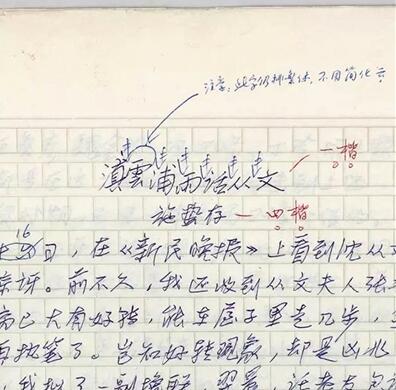 注意：此字仍排繁体，不用简化云
滇雲浦雨话从文 一楷
施蛰存 四楷
16日，在《新民晚报》上看到沈从文
惊讶。前不久，我还收到从文夫人张
病已大有好转，能在屋子里走几步，
执笔了。岂知好转现象，却是凶兆
我拟了一副挽联，翌晨，托老